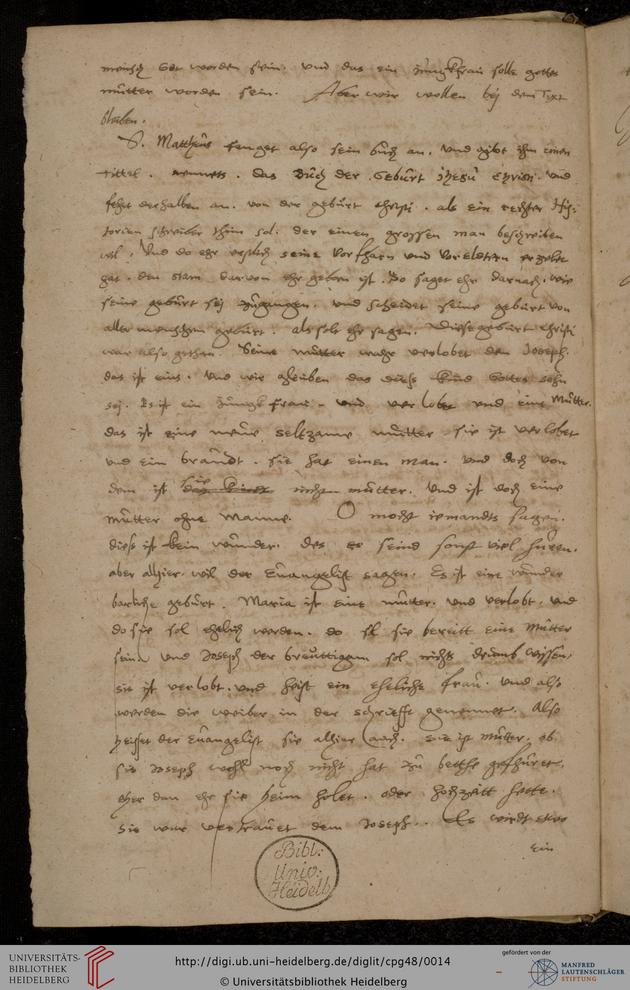 mensch Got worden sein. Vnd das ein Jungkfrau solle gottes
mutter worden sein. Aber wir wollen bej dem Text
bleiben.
S. Mattheus fenget also sein buch an. Vnd gibt ihm einen
tittel. nennets. das Buch der Geburt Jhesu Christi. Vnd
fehet derhalben an. von der geburt Christi. als ein rechter His-
torien schreiber thun sol. der einen grossen man beschreiben
wil. Vnd do ehr erstlich seine Vorfharn vnd Voreldtern erzelt
hat. den stam darvon ehr geborn ist. So saget ehr darnach. wie
seine geburt sej zugangen. vnd scheidet seine geburt von
aller menschen geburt. als solt ehr sagen. Diese geburt Christi
war also gethan. Seine mutter wahr verlobet dem Joseph.
das ist eins. Vnd wir gleuben das dies kind Gottes sohn
sej. Es ist ein Jungkfrau. vnd verlobt vnd eine Mutter.
das ist eine neue seltzame mutter sie ist verlobet
vnd ein braudt. sie hat einen man. vnd doch von
dem ist sie nicht mutter. Vnd ist doch eine
mutter ohne Manne. O mocht iemandts sagen.
dies ist kein wunder. des es seind sonst viel huren.
aber alhier wil der Euangelist sagen. Es ist eine wunder
barliche geburt. Maria ist eine mutter. vnd verlobt. vnd
do sie sol ehelich werden. do ist sie bereitt eine Mutter
sein vnd Joseph der breuttigam sol nichts drumb wissen,
sie ist verlobt. vnd heist ein eheliche frau. Vnd also
werden die weiber in der schriefft genennet. Also
heisset der Euangelist sie alhier auch. sie ist Mutter. ob
sie Joseph wohl noch nicht hat zu bethe gefhuret.
eher dan ehr sie heim holet. oder hochzeitt hette.
sie war vertrauet dem Joseph. Es wirdt etwo
ein
Bibl:
Univ:
Heidelb
UNIVERSITÄTS-
BIBLIOTHEK
HEIDELBERG
http://digi.ub.uni-heidelberg.de/diglit/cpg48/0014
© Universitätsbibliothek Heidelberg
gefördert von der
MANFRED
LAUTENSCHLÄGER
STIFTUNG